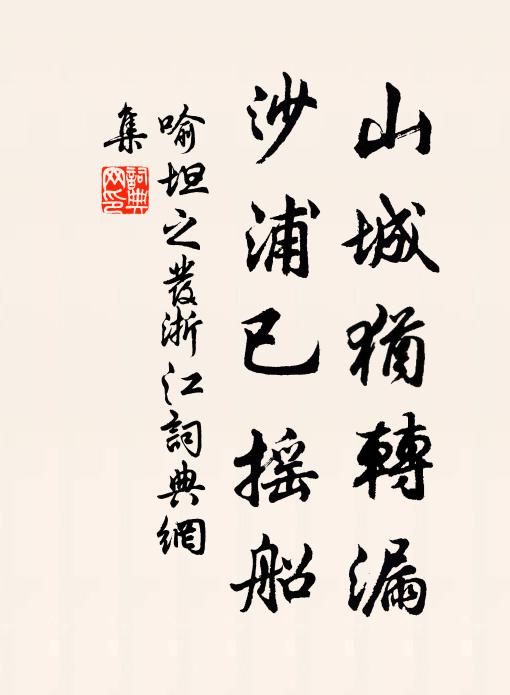 山城猶轉漏
沙浦已摇船
喻坦之發浙江詞典網
集
詞典
网印